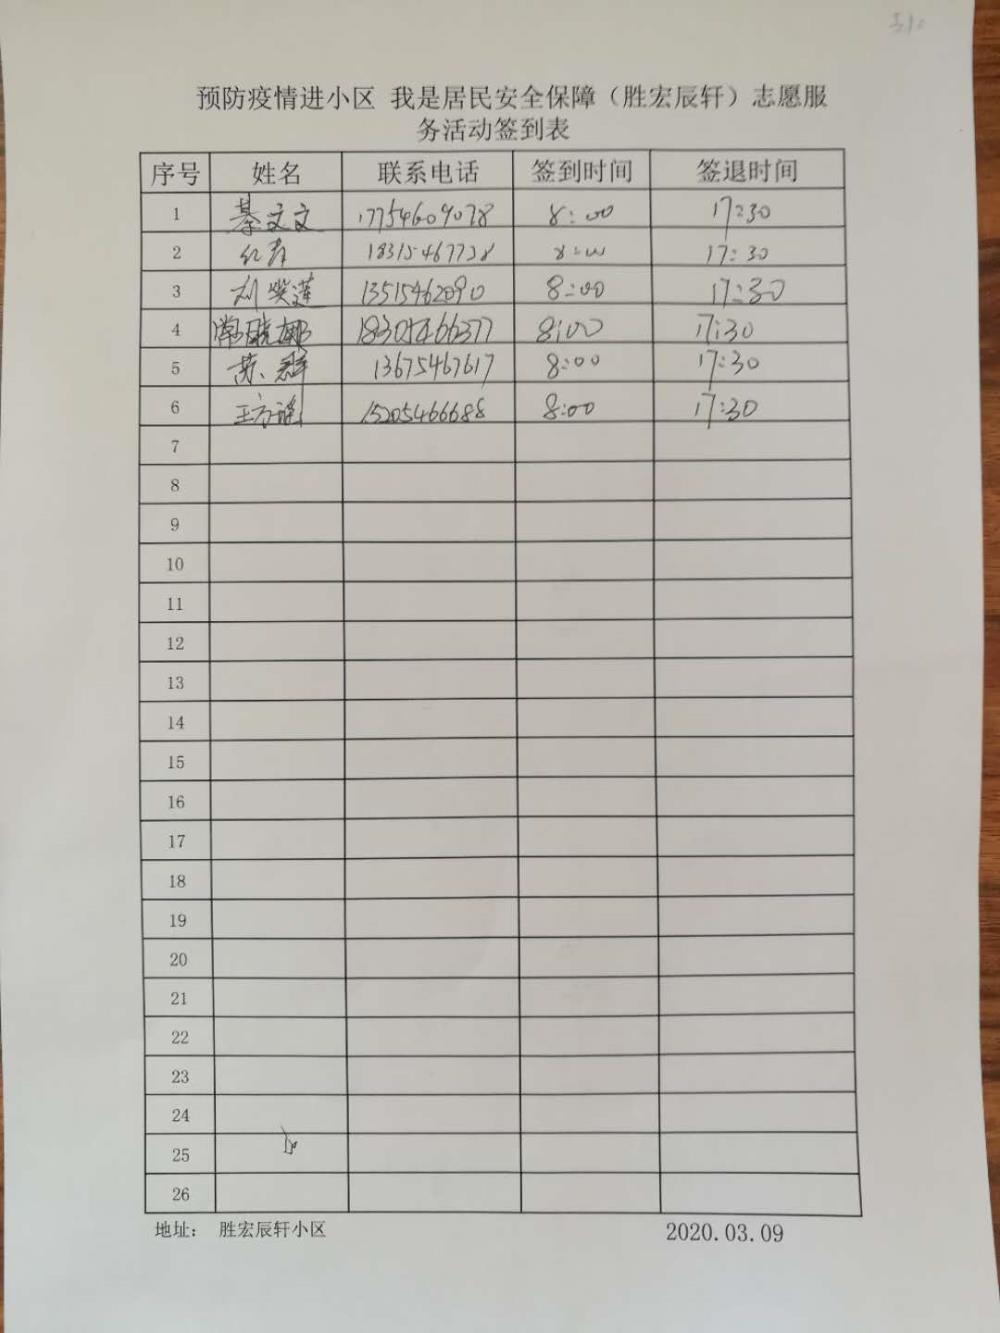 预防疫情进小区 我是居民安全保障（胜宏辰轩）志愿服
务活动签到表
序号 姓名 联系电话 签到时间 签退时间
1 綦文文 17754609078 8:00 17:30
2 18315467728 8:00 17:30
3 13515462090 8:00 17:30
4 常晓娜 8:00 17:30
5 苏群 13675467617 8:00 17:30
6 15205466688 8:00 17:30
7
8
9
10
11
12
13
14
15
16
17
18
19
20
21
22
23
24
25
26
地址： 胜宏辰轩小区 2020.03.09